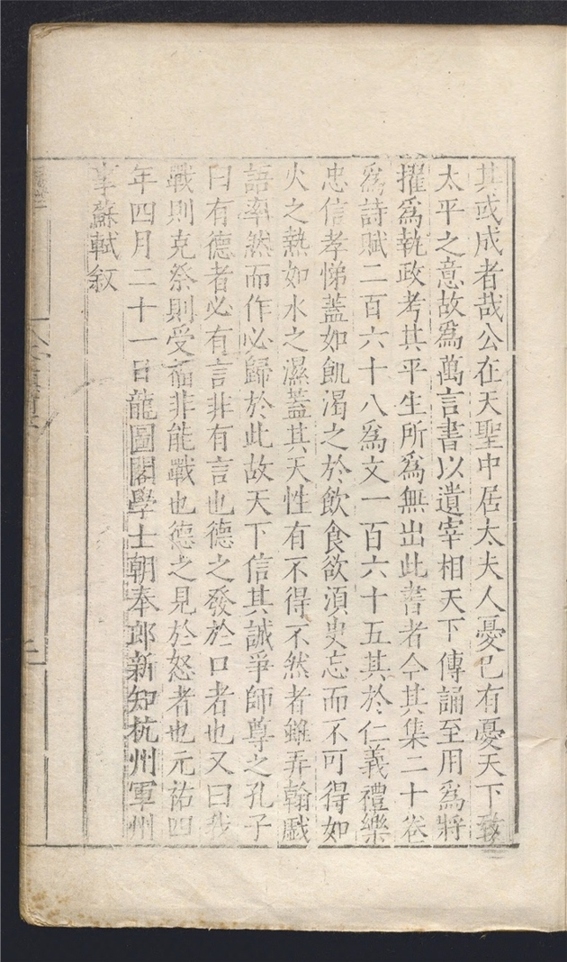 其或成者哉公在天聖中居太夫人憂已有憂天下致
太平之意故爲萬言書以遺宰相天下傳誦至用爲將
擢爲執政考其平生所爲無出此書者今其集二十卷
爲詩賦二百六十八爲文一百六十五其於仁義禮樂
忠信孝悌蓋如飢渴之於飲食欲須臾忘而不可得如
火之熱如水之濕蓋其天性有不得不然者雖弄翰戲
語率然而作必歸於此故天下信其誠爭師尊之孔子
曰有德者必有言非有言也德之發於口者也又曰我
戰則克祭則受福非能戰也德之見於怒者也元祐四
年四月二十一日龍圖閣學士朝奉郎新知杭州軍州
事蘇軾叙